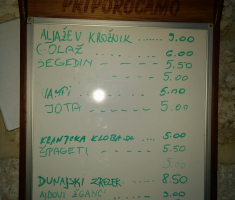 PRIPOROČAMO
ALJAŽEV KROŽNIK ....... 9.00
GOLAŽ ------ 6.00
SEGEDIN ---- 5.50
---- 5.00
VAMPI ------ 5.50
JOTA ------ 5.00
KRANJSKA KLOBASA ---- 5.00
ŠPAGETI ------ 5.50
5.00
DUNAJSKI ZREZEK ---- 8.50
AJDOVI ŽGANCI